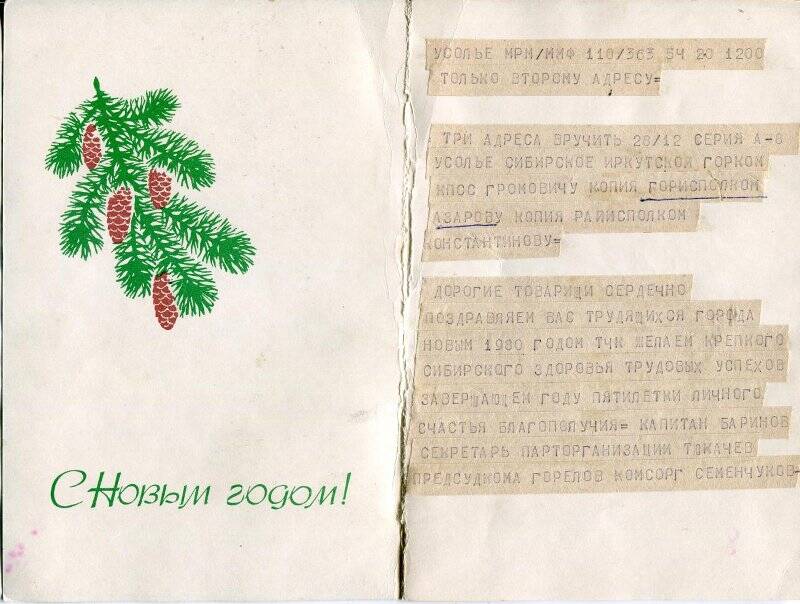 С Новым годом!
УСОЛЬЕ МРМ/ММФ 110/363 54 20 1200
ТОЛЬКО ВТОРОМУ АДРЕСУ=
ТРИ АДРЕСА ВРУЧИТЬ 28/12 СЕРИЯ А-8
УСОЛЬЕ СИБИРСКОЕ ИРКУТСКОЙ ГОРКОМ
КПСС ГРОКОВИЧУ КОПИЯ ГОРИСПОЛКОМ
АЗАРОВУ КОПИЯ РАЙИСПОЛКОМ
КОНСТАНТИНОВУ=
ДОРОГИЕ ТОВАРИЩИ СЕРДЕЧНО
ПОЗДРАВЯЕМ ВАС ТРУДЯЩИХСЯ ГОРОДА
НОВЫМ 1980 ГОДОМ ТЧК ЖЕЛАЕМ КРЕПКОГО
СИБИРСКОГО ЗДОРОВЬЯ ТРУДОВЫХ УСПЕХОВ
ЗАВЕРШАЮЩЕМ ГОДУ ПЯТИЛЕТКИ ЛИЧНОГО
СЧАСТЬЯ БЛАГОПОЛУЧИЯ= КАПИТАН БАРИНОВ
СЕКРЕТАРЬ ПАРТОРГАНИЗАЦИИ ТОКАЧЕВ
ПРЕДСУДКОМА ГОРЕЛОВ КОМСОРГ СЕМЕНЧУКОВ=